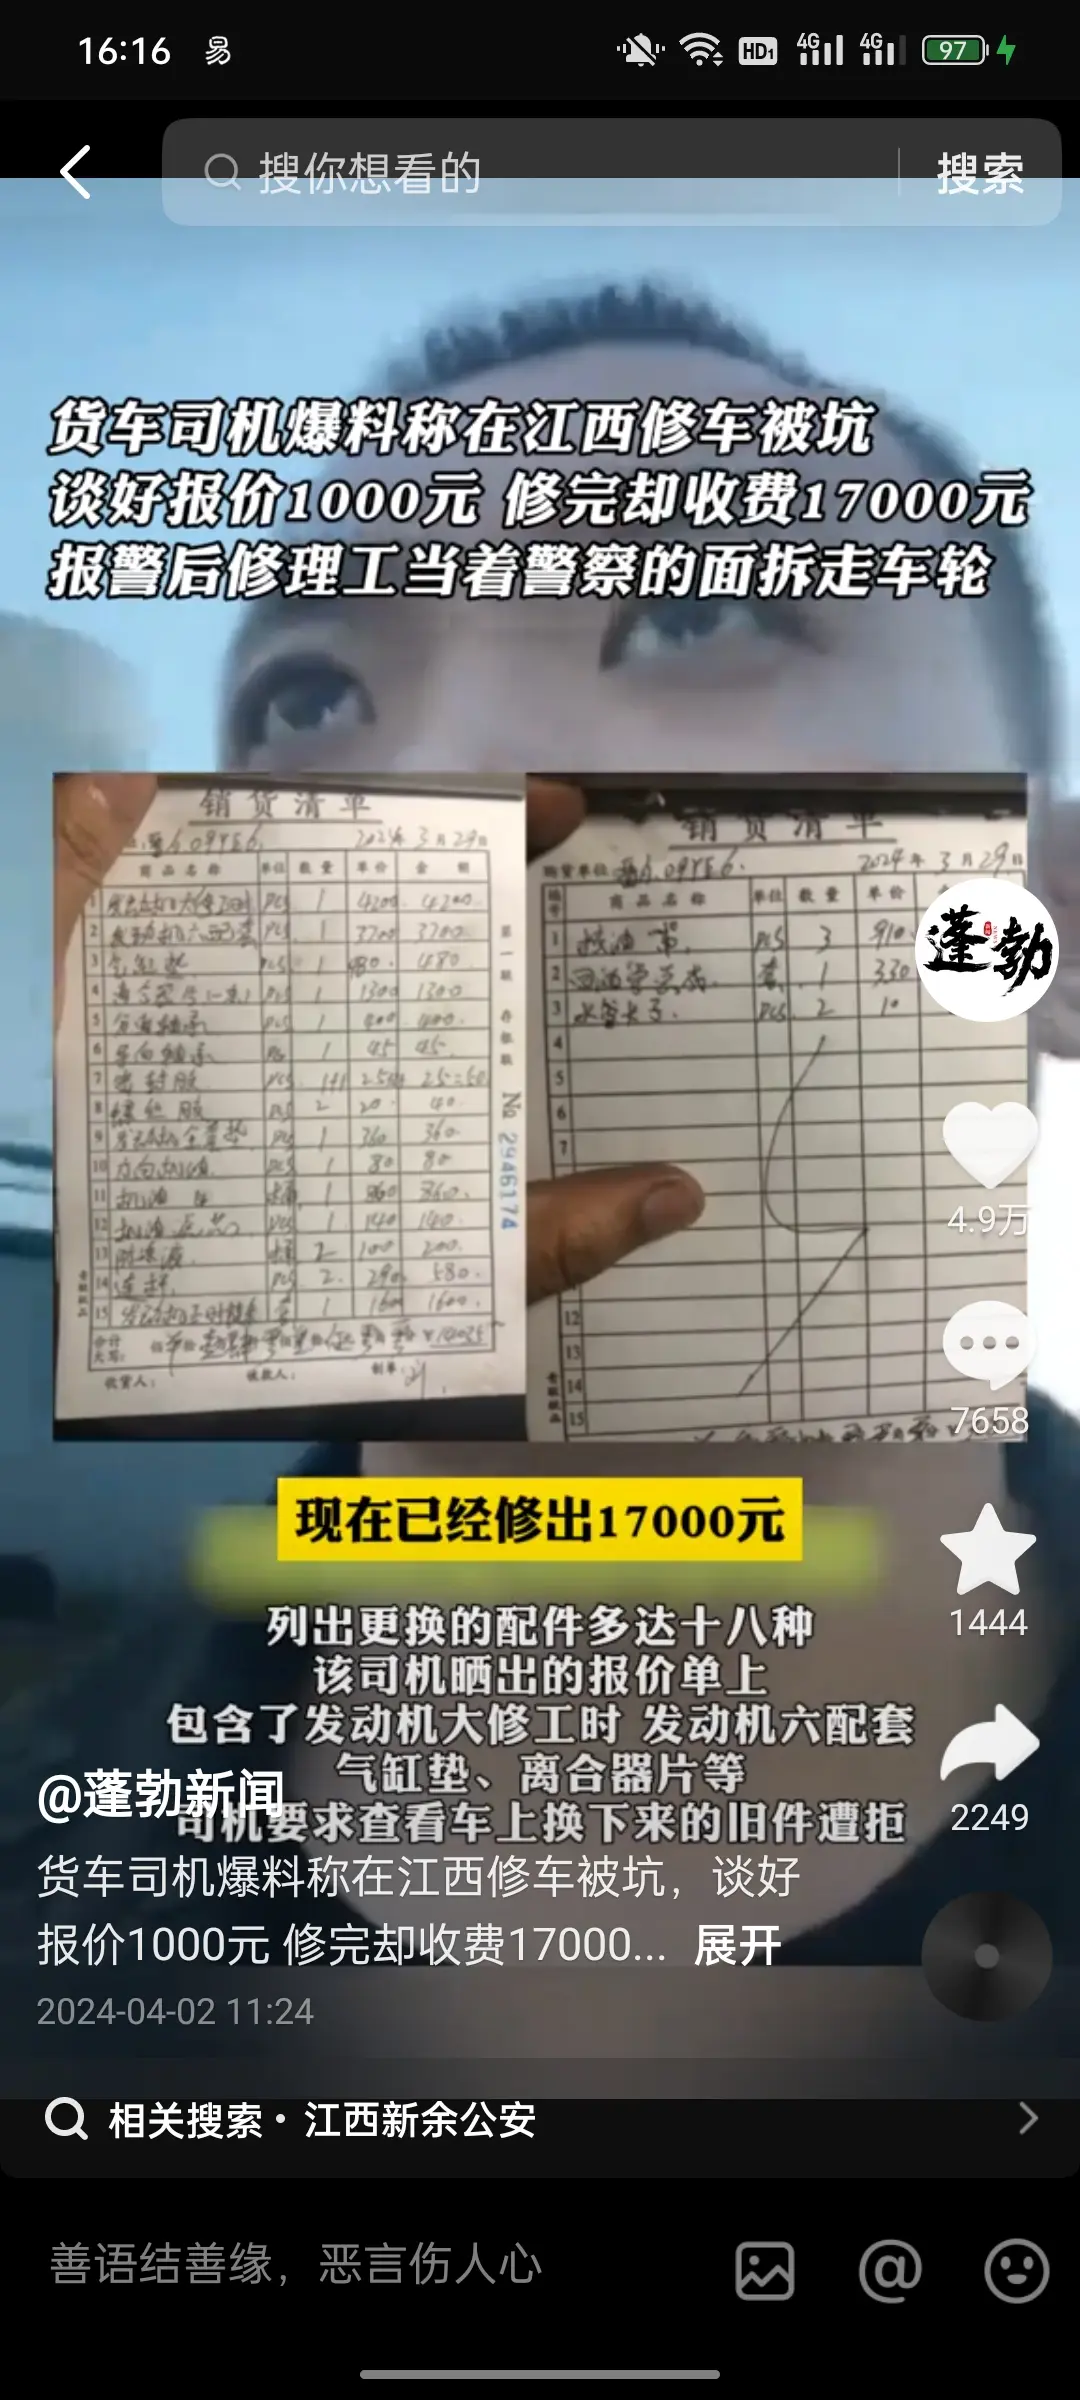 16:16 易
HD1 4G 4G 97
搜你想看的 搜索
货车司机爆料称在江西修车被坑
谈好报价1000元 修完却收费17000元
报警后修理工当着警察的面拆走车轮
销货清单
2024年3月29日
商品名称 单位 数量 单价 金额
1 发动机大修工时 PCS 1 4200. 4200.
2 发动机六配套 PCS 1 3700 3700.
3 气缸垫 PCS 480. 480
4 PCS 1300 1300
5 分离轴承 PCS 1 400 400.
6 导向轴承 PCS 1 45 45.
7 密封胶 PCS
8 螺丝胶 PCS 2 20. 40.
9 发动机全车垫 PCS 1 360 360.
10 方向机油 PCS 1 80 80
11 机油 桶 1 360 360.
12 机油滤芯 PCS 1 140 140.
13 防冻液. 桶 2 100 200.
14 PCS 2. 290 580.
15 套 1 1600 1600.
合计
大写:
收货人: 收款人: 制单:
第一联 存根联
No 2946174
销货清单
购货单位 2024年3月29日
编号 商品名称 单位 数量 单价
1 PCS 3 910
2 套. 1 330
3 PCS. 2 10
4
5
6
7
12
13
14
15
蓬勃
4.9万
7658
现在已经修出17000元
1444
列出更换的配件多达十八种
该司机晒出的报价单上
包含了发动机大修工时 发动机六配套
气缸垫、离合器片等
2249
@蓬勃新闻
司机要求查看车上换下来的旧件遭拒
货车司机爆料称在江西修车被坑，谈好
报价1000元 修完却收费17000... 展开
2024-04-02 11:24
相关搜索 · 江西新余公安
善语结善缘，恶言伤人心